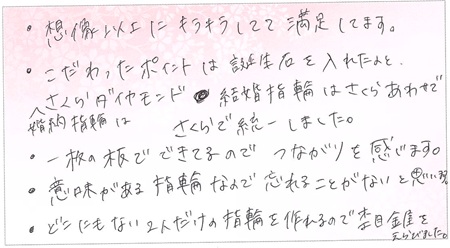 ・想像以上にキラキラしてて満足してます。
・こだわったポイントは誕生石を入れたのと、
さくらダイヤモンド 結婚指輪はさくらあわせで
婚約指輪は さくらで統一しました。
・一枚の板でできてるので つながりを感じます。
・意味がある指輪なので忘れることがないと思い
・どこにもない2人だけの指輪を作れるので杢目金屋を
えらびました。